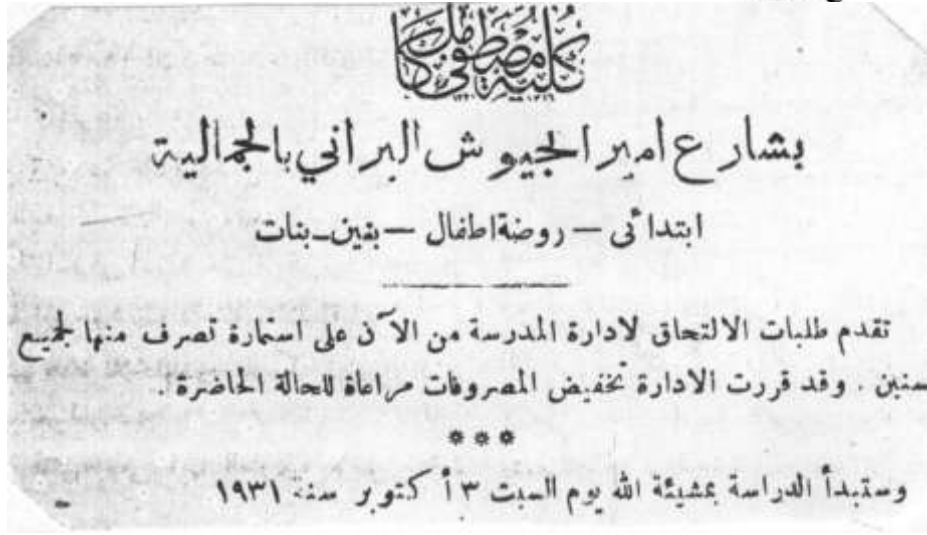 كلية مصطفى كامل
بشارع امير الجيوش البراني بالجمالية
ابتدائى – روضة اطفال – بنين – بنات
تقدم طلبات الالتحاق لادارة المدرسة من الآن على استمارة تصرف منها لجميع
سنين . وقد قررت الادارة تخفيض المصروفات مراعاة للحالة الحاضرة .
* * *
وستبدأ الدراسة بمشيئة الله يوم السبت ٣ أكتوبر سنة ١٩٣١